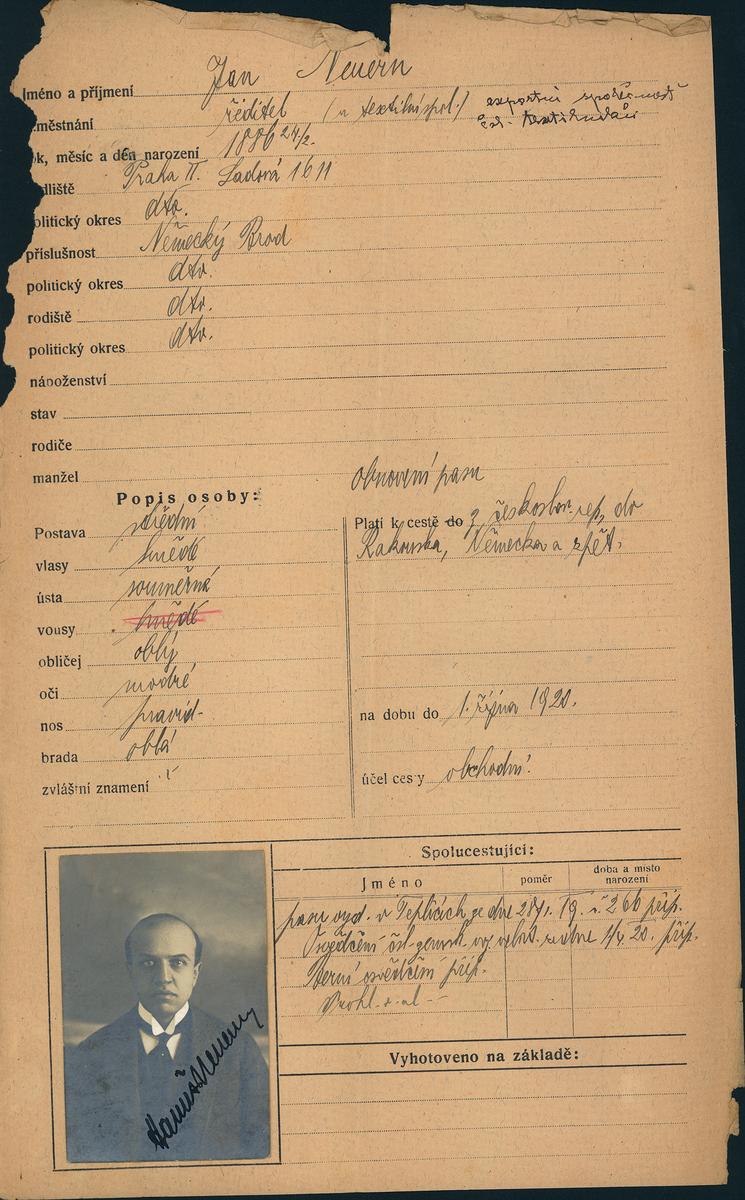 Jan Neuern
Jméno a příjmení
ředitel (u textilní spol.) exportní společnosti
městnání čsl.
ok, měsíc a den narození 1886 24/2.
dliště Praha II. Sadová 1611
olitický okres dto.
příslušnost Německý Brod
politický okres dto.
rodiště dto.
politický okres dto.
náboženství
stav
rodiče
manžel
Popis osoby:
Postava střední
vlasy hnědé
ústa souměrná
vousy hnědé
obličej oblý
oči modré
nos pravid-
brada oblá
zvláštní znamení
Obnovení pasu
Platí k cestě do z českoslov. rep. do
Rakouska, Německa a zpět.
na dobu do 1. října 1920.
účel cesty obchodní.
Spolucestující:
Jméno poměr doba a místo narození
pasu vyd. v Teplicích ze dne 28/1. 19. č. 266 příp.
Osvědčení čsl. ze dne 1/4 20. příp.
Berní osvědčení příp.
Vyhotoveno na základě:
Hanuš Neuern